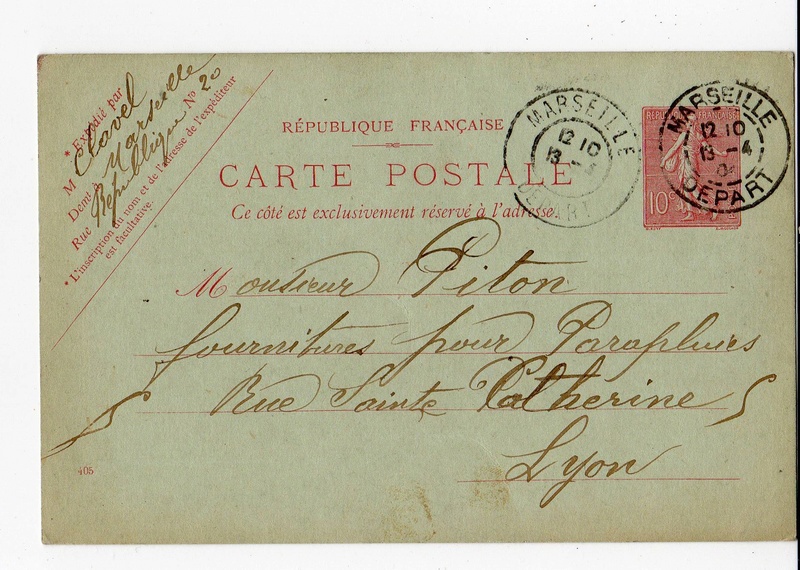 * Expédié par
M Clavel
Démt à Marseille
Rue République No 20
* L'inscription du nom et de l'adresse de l'expéditeur
est facultative.
RÉPUBLIQUE FRANÇAISE
CARTE POSTALE
Ce côté est exclusivement réservé à l'adresse.
MARSEILLE
12 10
13
DÉPART
RÉPUBLIQUE FRANÇAISE
10 c
MARSEILLE
12 10
13 -4
DÉPART
Monsieur Piton
fournitures pour Parapluies
Rue Sainte Catherine 5
Lyon
405